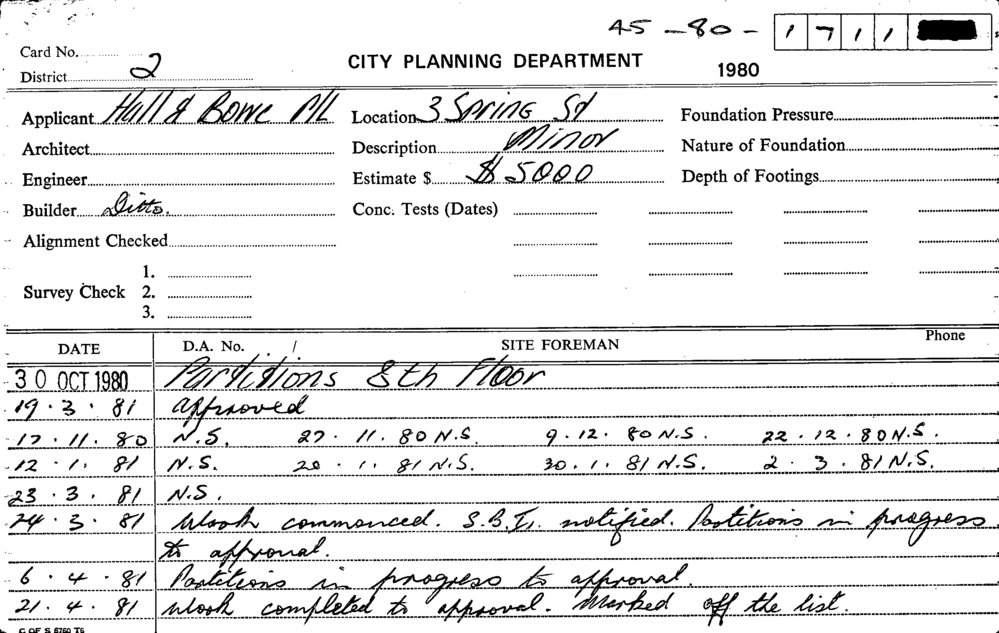 45-80-1711
Card No.
District 2
CITY PLANNING DEPARTMENT
1980
Applicant Hull & Bowe P/L Location 3 Spring St Foundation Pressure
Architect Description Minor Nature of Foundation
Engineer Estimate $ $5000 Depth of Footings
Builder Ditto. Conc. Tests (Dates)
Alignment Checked
1.
Survey Check 2.
3.
DATE D.A. No. / SITE FOREMAN Phone
30 OCT 1980 Partitions 8th Floor
19.3.81 approved
17.11.80 N.S. 27.11.80 N.S. 9.12.80 N.S. 22.12.80 N.S.
12.1.81 N.S. 20.1.81 N.S. 30.1.81 N.S. 2.3.81 N.S.
23.3.81 N.S.
24.3.81 Work commenced. S.B.I. notified. Partitions in progress
to approval.
6.4.81 Partitions in progress to approval.
21.4.81 Work completed to approval. Marked off the list.
C OF S 5760 T5